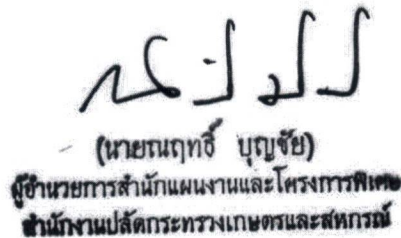 (นายณฤทธิ์ บุญชัย)
ผู้อำนวยการสำนักแผนงานและโครงการพิเศษ
สำนักงานปลัดกระทรวงเกษตรและสหกรณ์